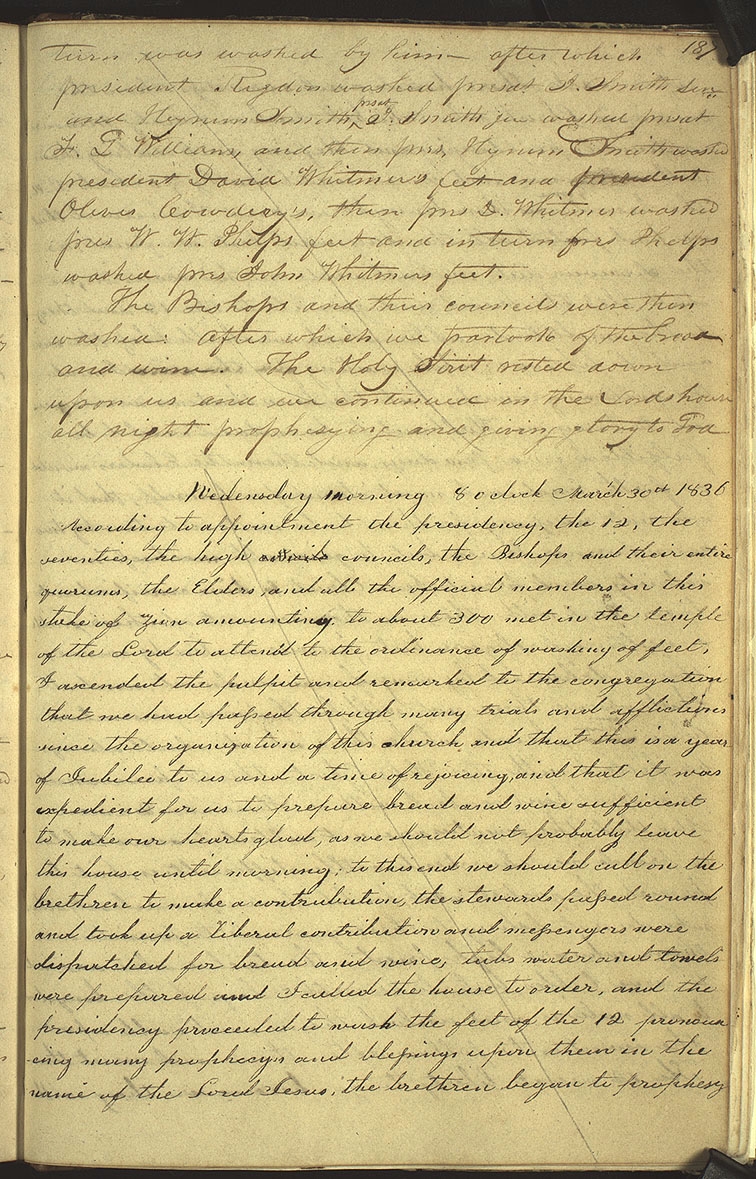 187
turn was washed by him— after which
president Rigdon washed presdt J. Smith Sen
and Hyrum Smith, presdt J. Smith jun washed presdt
F. G Williams, and then pres, Hyrum Smith washed
president David Whitmer's feet and president
Oliver Cowdery's, then pres D. Whitmer washed
pres W. W. Phelps feet and in turn pres Phelps
washed pres John Whitmers feet.
The Bishops and their councils were then
washed: After which we partook of the bread
and wine. The Holy Spirit rested down
upon us and we continued in the Lords house
all night prophesying and giving glory to God
Wedensday morning 8 o clock March 30th 1836
According to appointment the presidency, the 12, the
seventies, the high councils, the Bishops and their entire
quorums, the Elders, and all the official members in this
stake of Zion amounting to about 300 met in the temple
of the Lord to attend to the ordinance of washing of feet,
I ascended the pulpit and remarked to the congregation
that we had passed through many trials and afflictions
since the organization of this church and that this is a year
of Jubilee to us and a time of rejoicing, and that it was
expedient for us to prepare bread and wine sufficient
to make our hearts glad, as we should not probably leave
this house until morning; to this end we should call on the
brethren to make a contribution, the stewards passed round
and took up a liberal contribution and messengers were
dispatched for bread and wine; tubs water and towels
were prepared and I called the house to order, and the
presidency proceeded to wash the feet of the 12 pronoun
-cing many prophecys and blessings upon them in the
name of the Lord Jesus, the brethren began to prophesy